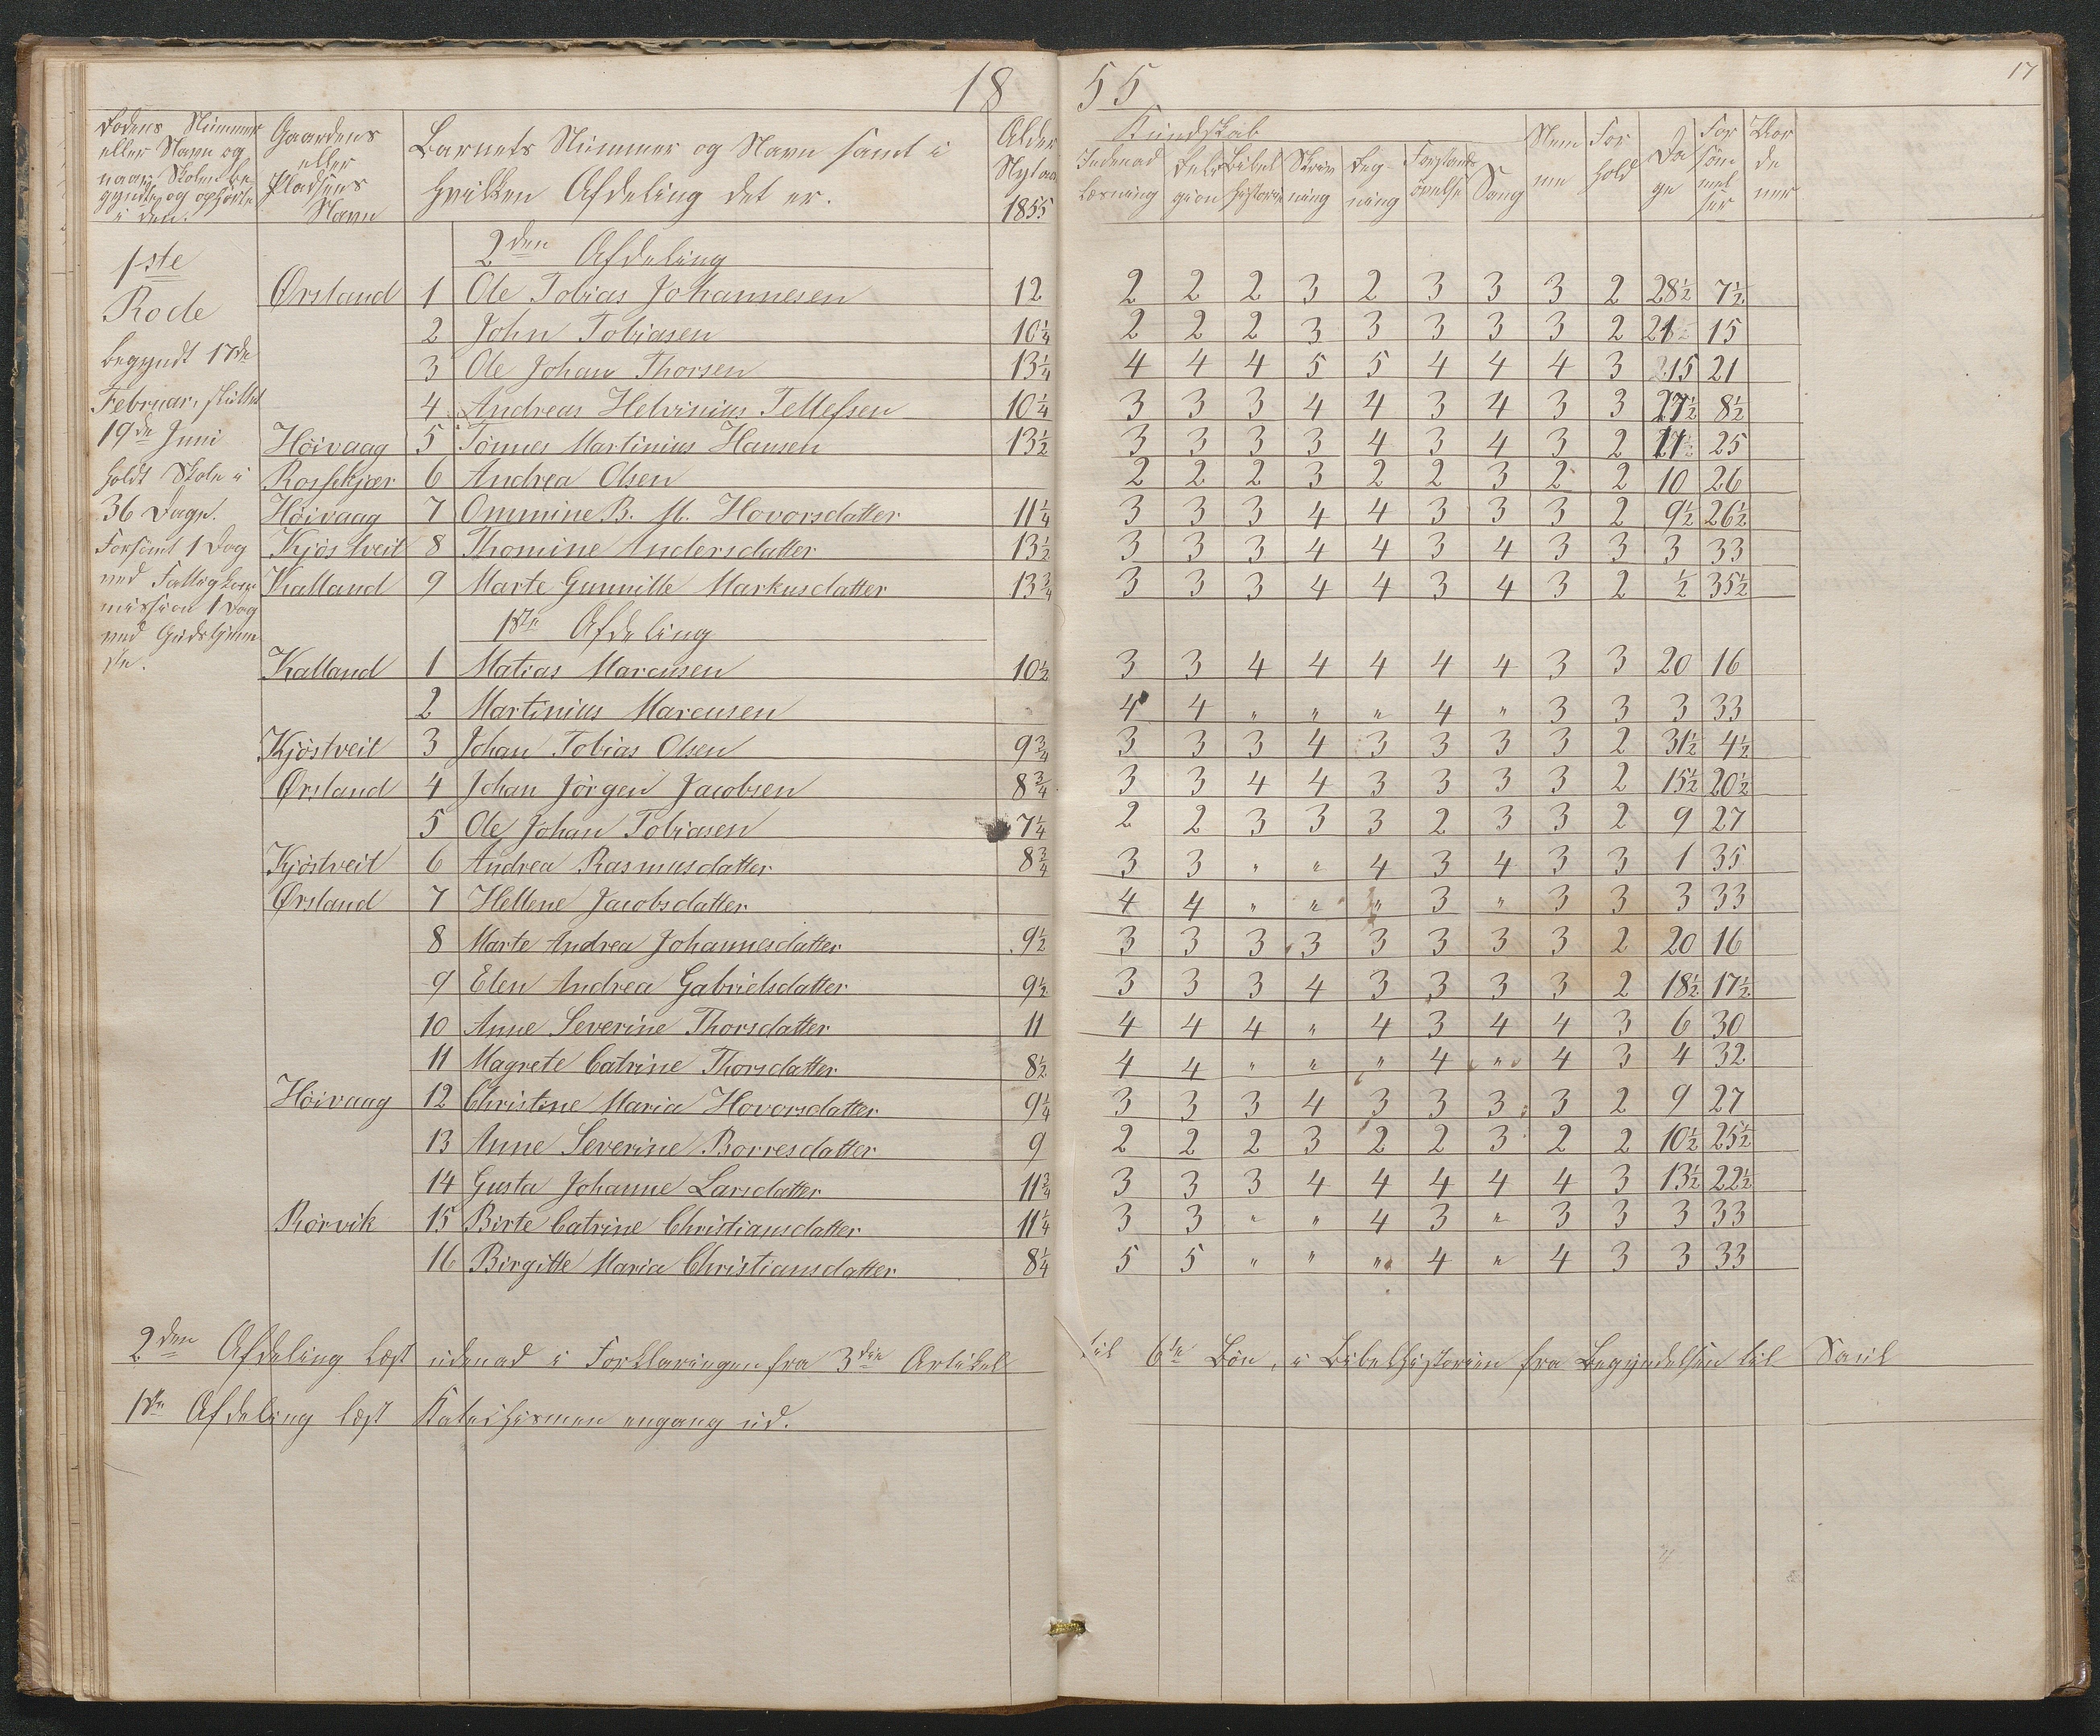 18 55
17
Rodens Nummer eller Navn og naar Skolen begyndte og ophörte i den.
Gaardens eller Pladsens Navn
Barnets Nummer og Navn samt i hvilken Afdeling det er.
Alder Nytaar 1855
Kundskab
Indenad Læsning
Religion
Bibelhistorie
Skrivning
Regning
Forstandsövelse
Sang
Nemme
Forhold
Dage
Forsömmelser
1ste Rode
begyndt 17de
Februar, sluttet
19de Juni
holdt Skole i
36 Dage.
Forsömt 1 Dag
ved Fattigkommission 1 Dag
ved Gudstjeneste.
2den Afdeling
Ørsland 1 Ole Tobias Johannesen 12 2 2 2 3 2 3 3 3 2 28½ 7½
2 John Tobiasen 10¼ 2 2 2 3 3 3 3 3 2 21 15
3 Ole Johan Thorsen 13¼ 4 4 4 5 5 4 4 4 3 15 21
4 Andreas Helvinius Tellefsen 10¼ 3 3 3 4 4 3 4 3 3 27½ 8½
Höivaag 5 Tönnes Martinius Hansen 13½ 3 3 3 3 4 3 4 3 2 11 25
Rosskjær 6 Andrea Olsen 2 2 2 3 2 2 3 2 2 10 26
Höivaag 7 Ommine B. M. Hovorsdatter 11¼ 3 3 3 4 4 3 3 3 2 9½ 26½
Kjöstveit 8 Thomine Andersdatter 13½ 3 3 3 4 4 3 4 3 3 3 33
Kalland 9 Marte Gunnille Markusdatter 13¾ 3 3 3 4 4 3 4 3 2 ½ 35½
1ste Afdeling
Kalland 1 Matias Marcusen 10½ 3 3 4 4 4 4 4 3 3 20 16
2 Martinius Marcusen 4 4 " " " 4 " 3 3 3 33
Kjöstveit 3 Johan Tobias Olsen 9¾ 3 3 3 4 3 3 3 3 2 31½ 4½
Ørsland 4 Johan Jörgen Jacobsen 8¾ 3 3 4 4 3 3 3 3 2 15½ 20½
5 Ole Johan Tobiasen 7¼ 2 2 3 3 3 2 3 3 2 9 27
Kjöstveit 6 Andrea Rasmusdatter 8¾ 3 3 " " 4 3 4 3 3 1 35
Ørsland 7 Hellene Jacobsdatter 4 4 " " " 3 " 3 3 3 33
8 Marte Andrea Johannesdatter 9½ 3 3 3 3 3 3 3 3 2 20 16
9 Elen Andrea Gabrielsdatter 9½ 3 3 3 4 3 3 3 3 2 18½ 17½
10 Anne Severine Thorsdatter 11 4 4 4 " 4 3 4 4 3 6 30
11 Magrete Catrine Thorsdatter 8½ 4 4 " " " 4 " 4 3 4 32
Höivaag 12 Christine Maria Hovorsdatter 9¼ 3 3 3 4 3 3 3 3 2 9 27
13 Anne Severine Borresdatter 9 2 2 2 3 2 2 3 2 2 10½ 25½
14 Gusta Johanne Larsdatter 11¾ 3 3 3 4 4 4 4 4 3 13½ 22½
Rörvik 15 Birte Catrine Christiansdatter 11¼ 3 3 " " 4 3 " 3 3 3 33
16 Birgitte Maria Christiansdatter 8¼ 5 5 " " " 4 " 4 3 3 33
2den Afdeling læst udenad i Forklaringen fra 3die Artikel til 6te Bön, i Bibelhistorien fra Begyndelsen til Saul
1ste Afdeling læst Katechismen engang ud.